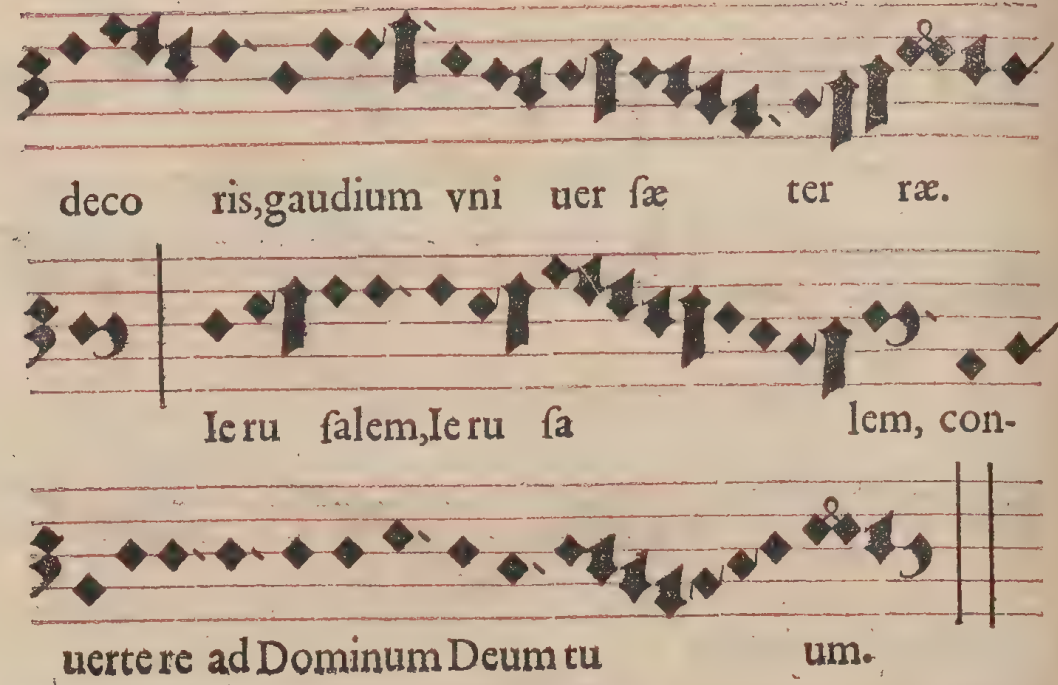 deco ris,gaudium vni uer ſæ ter ræ.
Ie ru ſalem,Ie ru ſa lem, con-
uerte re ad Dominum Deum tu um.